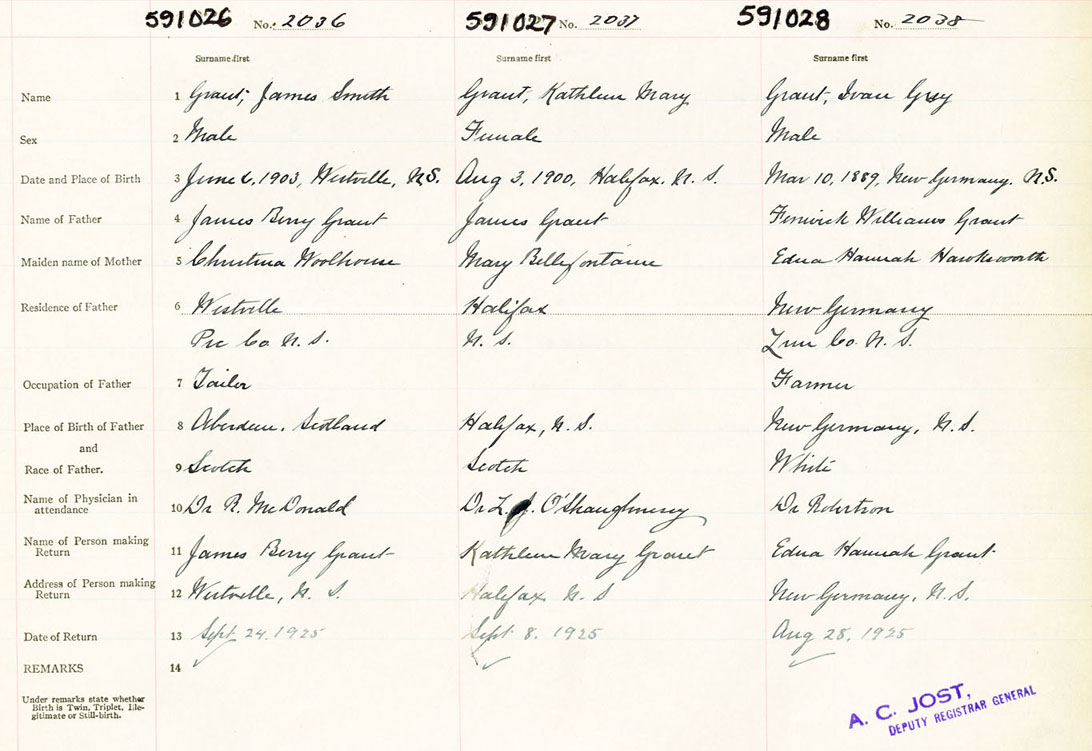 591026 No. 2036 591027 No. 2037 591028 No. 2038
Surname first Surname first Surname first
Name 1 Grant, James Smith Grant, Kathleen Mary Grant, Ivan Grey
Sex 2 Male Female Male
Date and Place of Birth 3 June 6, 1903, Westville, N.S. Aug 3, 1900, Halifax. N. S. Mar 10, 1889, New Germany. N.S.
Name of Father 4 James Berry Grant James Grant Fenwick Williams Grant
Maiden name of Mother 5 Christina Woolhouse Mary Bellefontaine Edna Hannah Hawksworth
Residence of Father 6 Westville Halifax New Germany
Pic Co. N. S. N. S. Lun Co. N. S.
Occupation of Father 7 Tailor Farmer
Place of Birth of Father 8 Aberdeen, Scotland Halifax, N. S. New Germany, N. S.
and
Race of Father. 9 Scotch Scotch White
Name of Physician in
attendance 10 Dr R. McDonald Dr L. J. O'Shaughnessy Dr Robertson
Name of Person making
Return 11 James Berry Grant Kathleen Mary Grant Edna Hannah Grant
Address of Person making
Return 12 Westville, N. S. Halifax N. S New Germany, N. S.
Date of Return 13 Sept. 24, 1925 Sept 8. 1925 Aug 28, 1925
REMARKS 14
Under remarks state whether
Birth is Twin, Triplet, Ille-
gitimate or Still-birth.
A. C. JOST,
DEPUTY REGISTRAR GENERAL